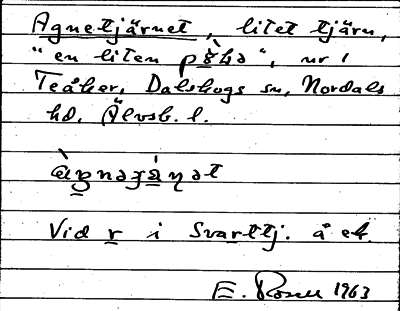 Agnetjärnet, litet tjärn,
"en liten pö̀hə", nr 1
Teåker, Dalskogs sn, Nordals
hd, Älvsb. l.
Vid r i Svarttj. å ek.
E. Rosell 1963